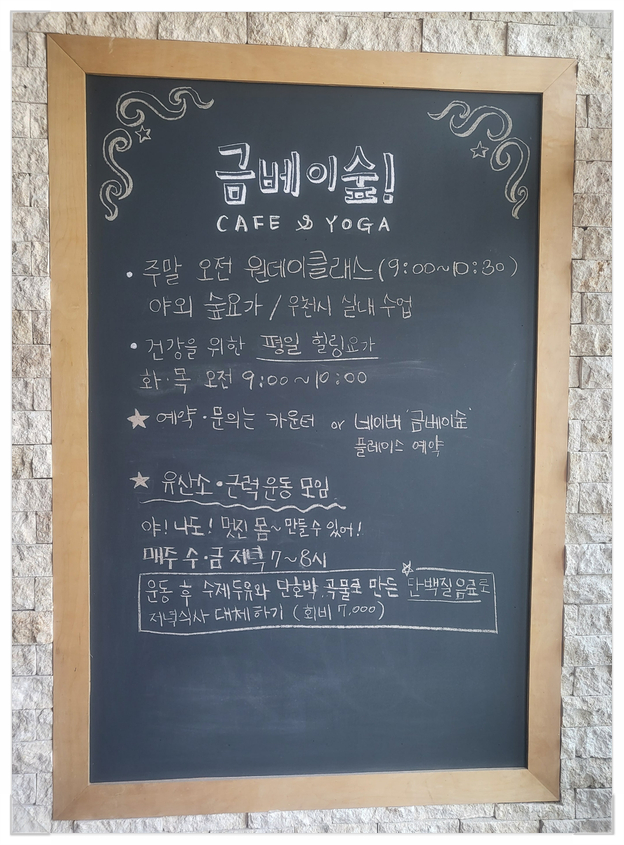 금베이숲!
CAFE & YOGA
• 주말 오전 원데이클래스 (9:00~10:30)
야외 숲요가 / 우천시 실내 수업
• 건강을 위한 평일 힐링요가
화·목 오전 9:00~10:00
★ 예약·문의는 카운터 or 네이버 '금베이숲'
플레이스 예약
★ 유산소·근력운동 모임
야! 나도! 멋진 몸~ 만들 수 있어!
매주 수·금 저녁 7~8시
운동 후 수제두유와 단호박, 곡물로 만든 단백질음료로
저녁식사 대체하기 (회비 7,000)